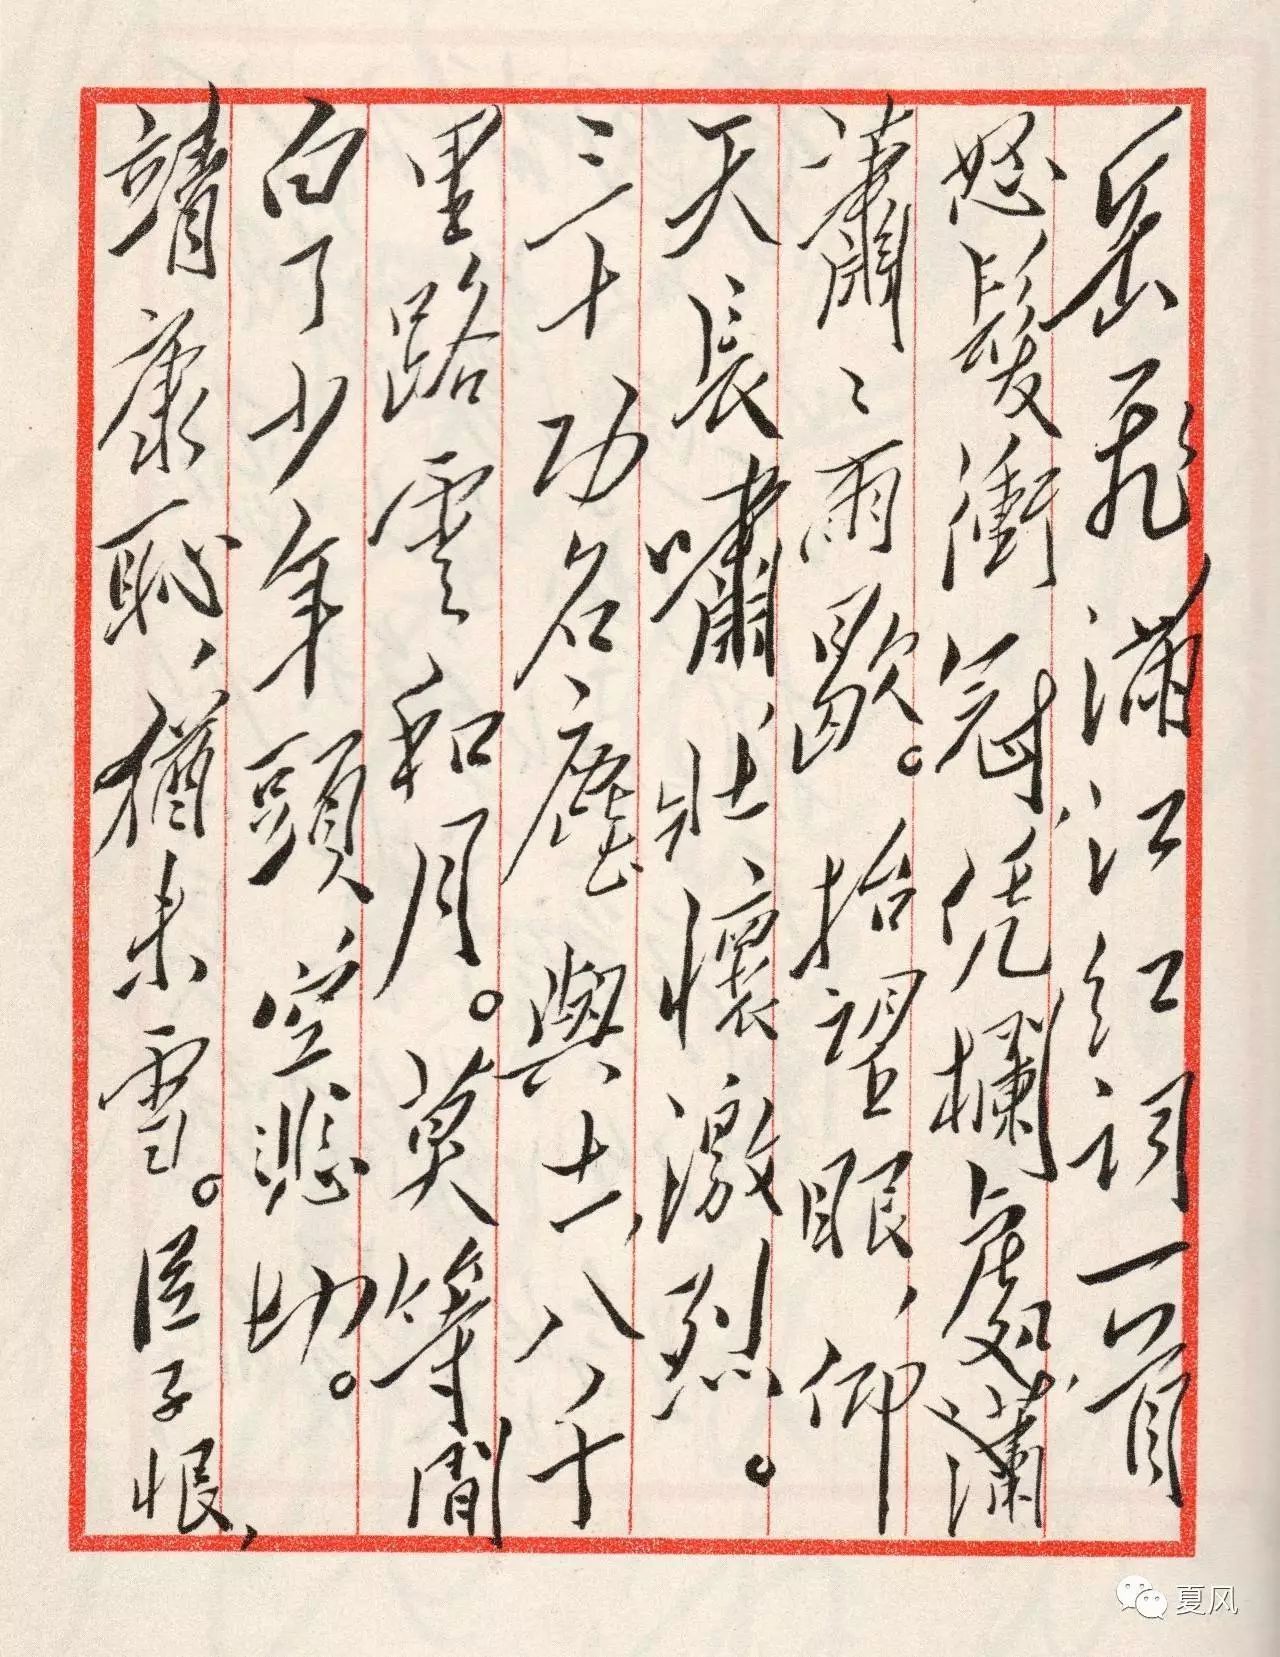 岳飛,满江红词一首
怒髮衝冠,凭欄處,瀟
瀟々雨歇。抬望眼,仰
天長嘯,壯懷激烈。
三十功名塵與土,八千
里路雲和月。莫等閒
白了少年頭,空悲切。
靖康恥,猶未雪。臣子恨,
夏风